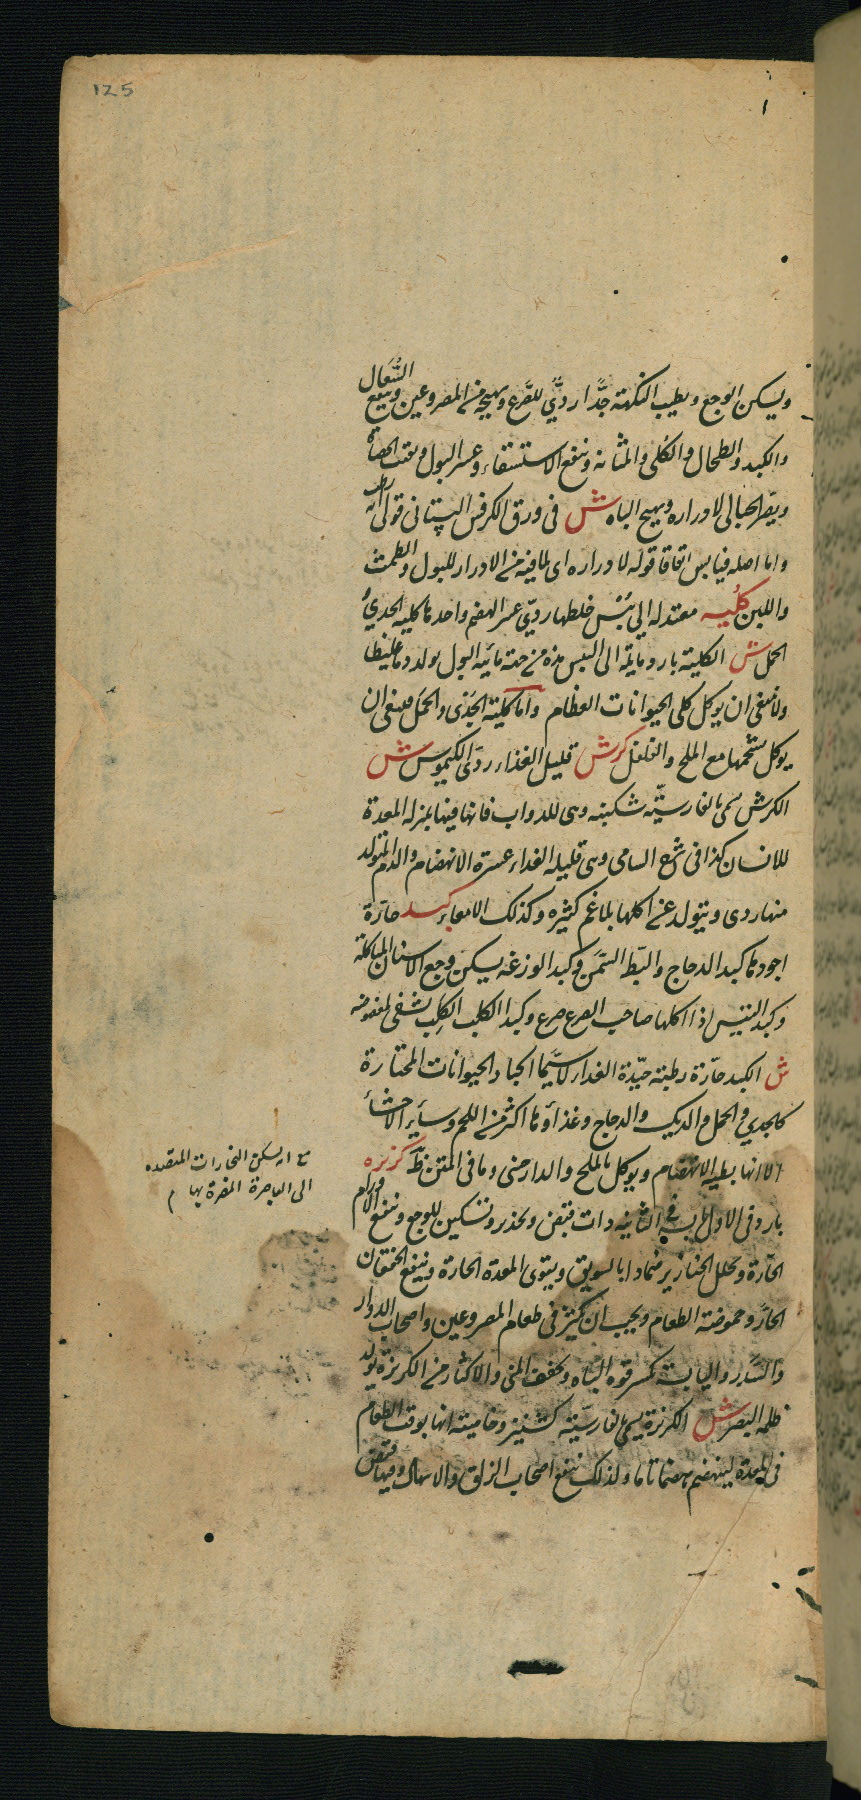 125
ويسكن الوجع ويطيب النكهة جدّا ردىّ للصرع ويهيجه من المصروعين وينفع السُّعال
والكبد والطحال والكلى والمثانة وينفع الاستسقاء وعسر البول ويفتت الحصاة
ويضر الحبالى لادراره ويهيج الباه ش فى ورق الكرفس البستانى قولى انه رطب
واما اصله فيابس اتفاقا قوله لادراره اى لما فيه من الادرار للبول والطمث
واللبن كلية معتدلة الى يُبْس خلطها ردىّ عسر الهضم واحدها كلية الجدىُ
الحمل ش الكلية باردة مايلة الى اليبس هذه من جهة مائية البول يولد دما غليظا
ولا ينبغى ان يوكل كلى الحيوانات العظام واما كلية الجَدْى والحمَل فينبغى ان
يوكل شحمها مع الملح والفلفل كرش قليل الغذاء ردىّ الكيموس ش
الكرش سمى بالفارسيّة شكنبه وهى للدواب فانها فيها بمنزلة المعدة
للانسان كذا فى شرح السامى وهى قليلة الغداء عسرة الانهضام والدم المتولد
منها ردى ويتولد عن اكلها بلاغم كثيره وكذلك الامعاء كبد حارّة
اجودها كبد الدجاج والبّط السَّمَن وكبد الوزغة يسكن وجع الاسنان الماكلة
وكبد التيس اذا اكلها صاحب الصرع صرع وكبد الكلب الكَلِب تشفى لمعضوضه
ش الكبد حارّة رطبة جيّدة الغداء لاسيّما اكباد الحيوانات المختارة
كالجدي والحمل والديك والدجاج وغذاؤها اكثر من اللحم وسائر الاحشاء
الا انها بطيه الانهضام ويوكل بالملح والدارصنى وما فى المتن ظّ كزبره
بارد فى الاولى يابسة فى الثانيه ذات قبض وتخدير وتسكين للوجع وينفع الاورام
الحارّة ويحلل الخنازير ضمادا بالسويق ويقوى المعدة الحارة وينفع الخفقان
الحارّ وحموضة الطعام ويجب ان يكثر فى طعام المصروعين واصحاب الدوار
والسَّدر واليابسة تكسر قوه الباه وتجفف المنى والاكثار من الكزبرة يولد
ظلمه البصر ش الكزبرة يسمى بالفارسيّة كشنيز وخاصيته انها يوقف الطعام
فى المعدة لينهضم هضما تاما ولذلك ينفع اصحاب الزلق والاسهال وفيها قبض
مع انه يسكن البخارات المتصعده
الى الباصرة المضرة بها م